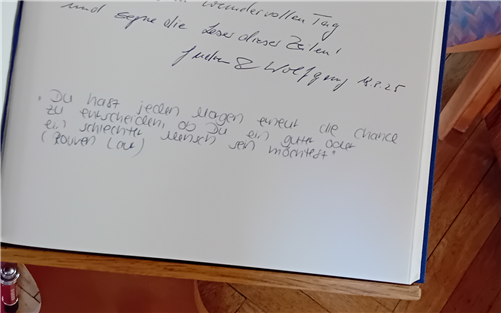 wundervollen Tag
und segne die Leser dieser Zeilen!
& Wolfgang 18.8.25
"Du hast jeden Morgen erneut die Chance
zu entscheiden, ob Du ein guter oder
ein schlechter Mensch sein möchtest"
(Rouven Laur)